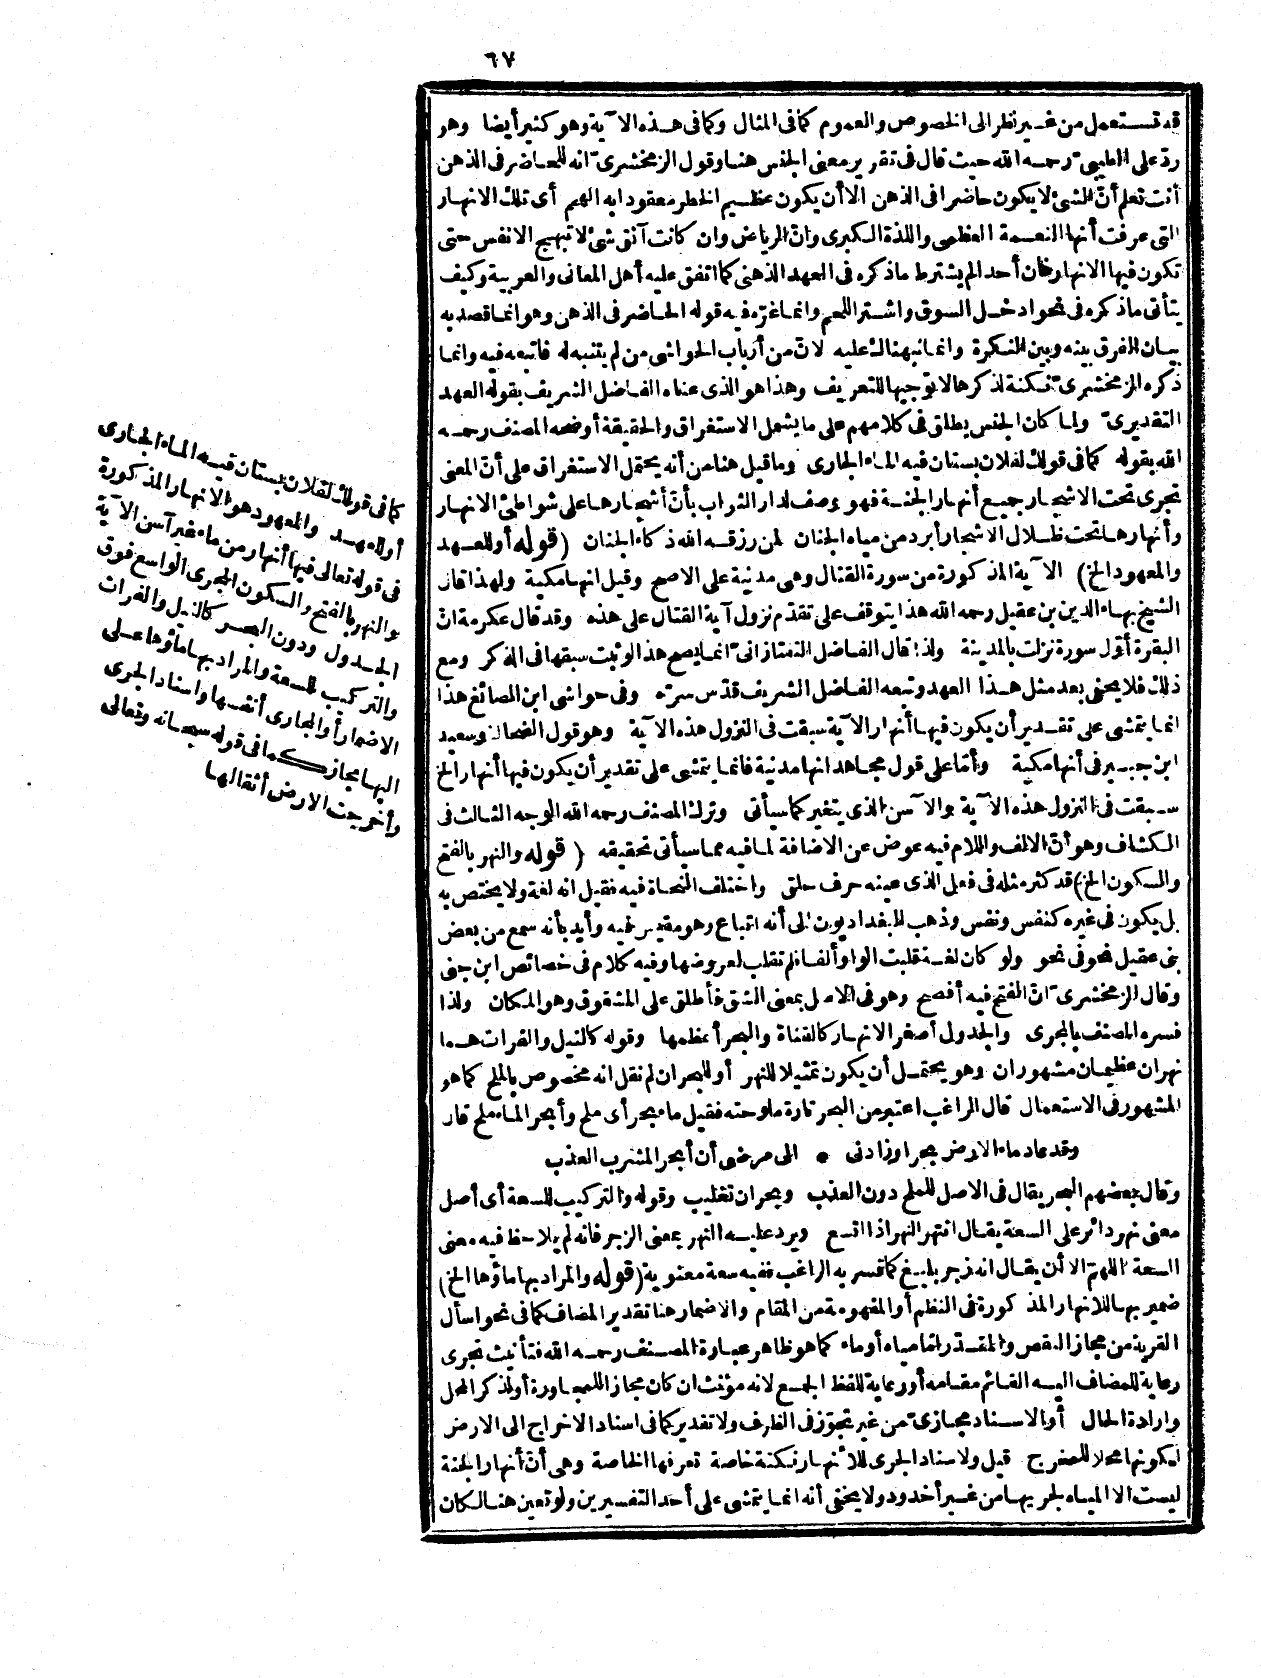 ٦٧
قد تستعمل من غير نظر الى الخصوص والعموم كما فى المثال وكما فى هذه الآية وهو كثير أيضا وهو
ردّ على الطيبىّ رحمه الله حيث قال فى تقرير معنى الجنس هنا وقول الزمخشرىّ انه للحاضر فى الذهن
أنت تعلم أنّ الشئ لا يكون حاضرا فى الذهن الا أن يكون عظيم الخطر معقودا به الهم أى تلك الانهار
التى عرفت أنها النعمة العظمى واللذة الكبرى وانّ الرياض وان كانت آنق شئ لا تبهج الانفس حتى
تكون فيها الانهار فان أحدا لم يشترط ما ذكره فى العهد الذهنى كما اتفق عليه أهل المعانى والعربية وكيف
يتأتى ما ذكره فى نحو ادخل السوق واشتر اللحم وانما غرّه فيه قوله الحاضر فى الذهن وهو انما قصد به
بيان الفرق بينه وبين النكرة وانما نبهناك عليه لانّ من أرباب الحواشى من لم يتنبه له فاتبعه فيه وانما
ذكره الزمخشرىّ نكتة لذكرها لا توجيها للتعريف وهذا هو الذى عناه الفاضل الشريف بقوله العهد
التقديرىّ ولما كان الجنس يطلق فى كلامهم على ما يشمل الاستغراق والحقيقة أوضحه المصنف رحمه
الله بقوله كما فى قولك لفلان بستان فيه الماء الجارى وما قيل هنا من أنه يحتمل الاستغراق على أنّ المعنى
تجرى تحت الاشجار جميع أنهار الجنة فهو وصف لدار الثواب بأنّ أشجارها على شواطئ الانهار
وأنهارها تحت ظلال الاشجار أبرد من مياه الجنان لمن رزقه الله ذكاء الجنان (قوله أو للعهد
والمعهود الخ) الآية المذكورة من سورة القتال وهى مدنية على الاصح وقيل انها مكية ولهذا قال
الشيخ بهاء الدين بن عقيل رحمه الله هذا يتوقف على تقدّم نزول آية القتال على هذه وقد قال عكرمة انّ
البقرة أوّل سورة نزلت بالمدينة ولذا قال الفاضل التفتازانىّ انما يصح هذا لو ثبت سبقها فى الذكر ومع
ذلك فلا يخفى بعد مثل هذا العهد وتبعه الفاضل الشريف قدّس سرّه وفى حواشى ابن الصائغ هذا
انما يتمشى على تقدير أن يكون فيها أنهار الآية سبقت فى النزول هذه الآية وهو قول الضحاك وسعيد
ابن جبير فى أنها مكية وأمّا على قول مجاهد انها مدنية فانما يتمشى على تقدير أن يكون فيها أنهار الخ
سبقت فى النزول هذه الآية والآسن الذى يتغير كما سيأتى وترك المصنف رحمه الله الوجه الثالث فى
الكشاف وهو أنّ الالف واللام فيه عوض عن الاضافة لما فيه مما سيأتى تحقيقه (قوله والنهر بالفتح
والسكون الخ) قد كثر مثله فى فعل الذى عينه حرف حلقى واختلف النحاة فيه فقيل انه لغة ولا يختص به
بل يكون فى غيره كنفس ونفس وذهب البغداديون الى أنه اتباع وهو مقيس فيه وأيد بأنه سمع من بعض
بنى عقيل نحو فى نحو ولو كان لغة قلبت الواو ألفا فلم تقلب لعروضها وفيه كلام فى خصائص ابن جنى
وقال الزمخشرىّ انّ الفتح فيه أفصح وهو فى الاصل بمعنى الشق فأطلق على المشقوق وهو المكان ولذا
فسره المصنف بالمجرى والجدول أصغر الانهار كالقناة والبحر أعظمها وقوله كالنيل والفرات هما
نهران عظيمان مشهوران وهو يحتمل أن يكون تمثيلا للنهر أو للبحر ان لم نقل انه مخصوص بالملح كما هو
المشهور فى الاستعمال قال الراغب اعتبر من البحر تارة ملوحته فقيل ماء بحر أى ملح وأبحر الماء ملح قال
وقد عاد ماء الارض بحرا وزادنى • الى مرضى أن أبحر المشرب العذب
وقال بعضهم البحر يقال فى الاصل للملح دون العذب وبحران تغليب وقوله والتركيب للسعة أى أصل
معنى نهر دائر على السعة يقال انتهر النهر اذا اتسع ويرد عليه النهر بمعنى الزجر فانه لم يلاحظ فيه معنى
السعة اللهمّ الا أن يقال انه زجر بليغ كما فسر به الراغب ففيه سعة معنوية (قوله والمراد بها ماؤها الخ)
ضمير بها للانهار المذكورة فى النظم أو المفهومة من المقام والاضمار هنا تقدير المضاف كما فى نحو اسأل
القرية من مجاز النقص والمقدّر امّا مياه أو ماء كما هو ظاهر عبارة المصنف رحمه الله فتأنيث تجرى
رعاية للمضاف اليه القائم مقامه أو رعاية للفظ الجمع لانه مؤنث ان كان مجازا للمجاورة أو لذكر المحل
وارادة الحال أو الاسناد مجازىّ من غير تجوّز فى الظرف ولا تقدير كما فى اسناد الاخراج الى الارض
لكونها محلا للمخرج قيل ولاسناد الجرى للانهار نكتة خاصة تعرفها الخاصة وهى أنّ أنهار الجنة
ليست الا المياه لجريها من غير أخدود ولا يخفى أنه انما يتمشى على أحد التفسيرين ولو تعين هنا لكان
كما فى قولك لفلان بستان فيه الماء الجارى
أو للعهد والمعهود هو الانهار المذكورة
فى قوله تعالى فيها أنهار من ماء غير آسن الآية
والنهر بالفتح والسكون المجرى الواسع فوق
الجدول ودون البحر كالنيل والفرات
والتركيب للسعة والمراد بها ماؤها على
الاضمار أو المجارى أنفسها واسناد الجرى
اليها مجاز كما فى قوله سبحانه وتعالى
وأخرجت الارض أثقالها